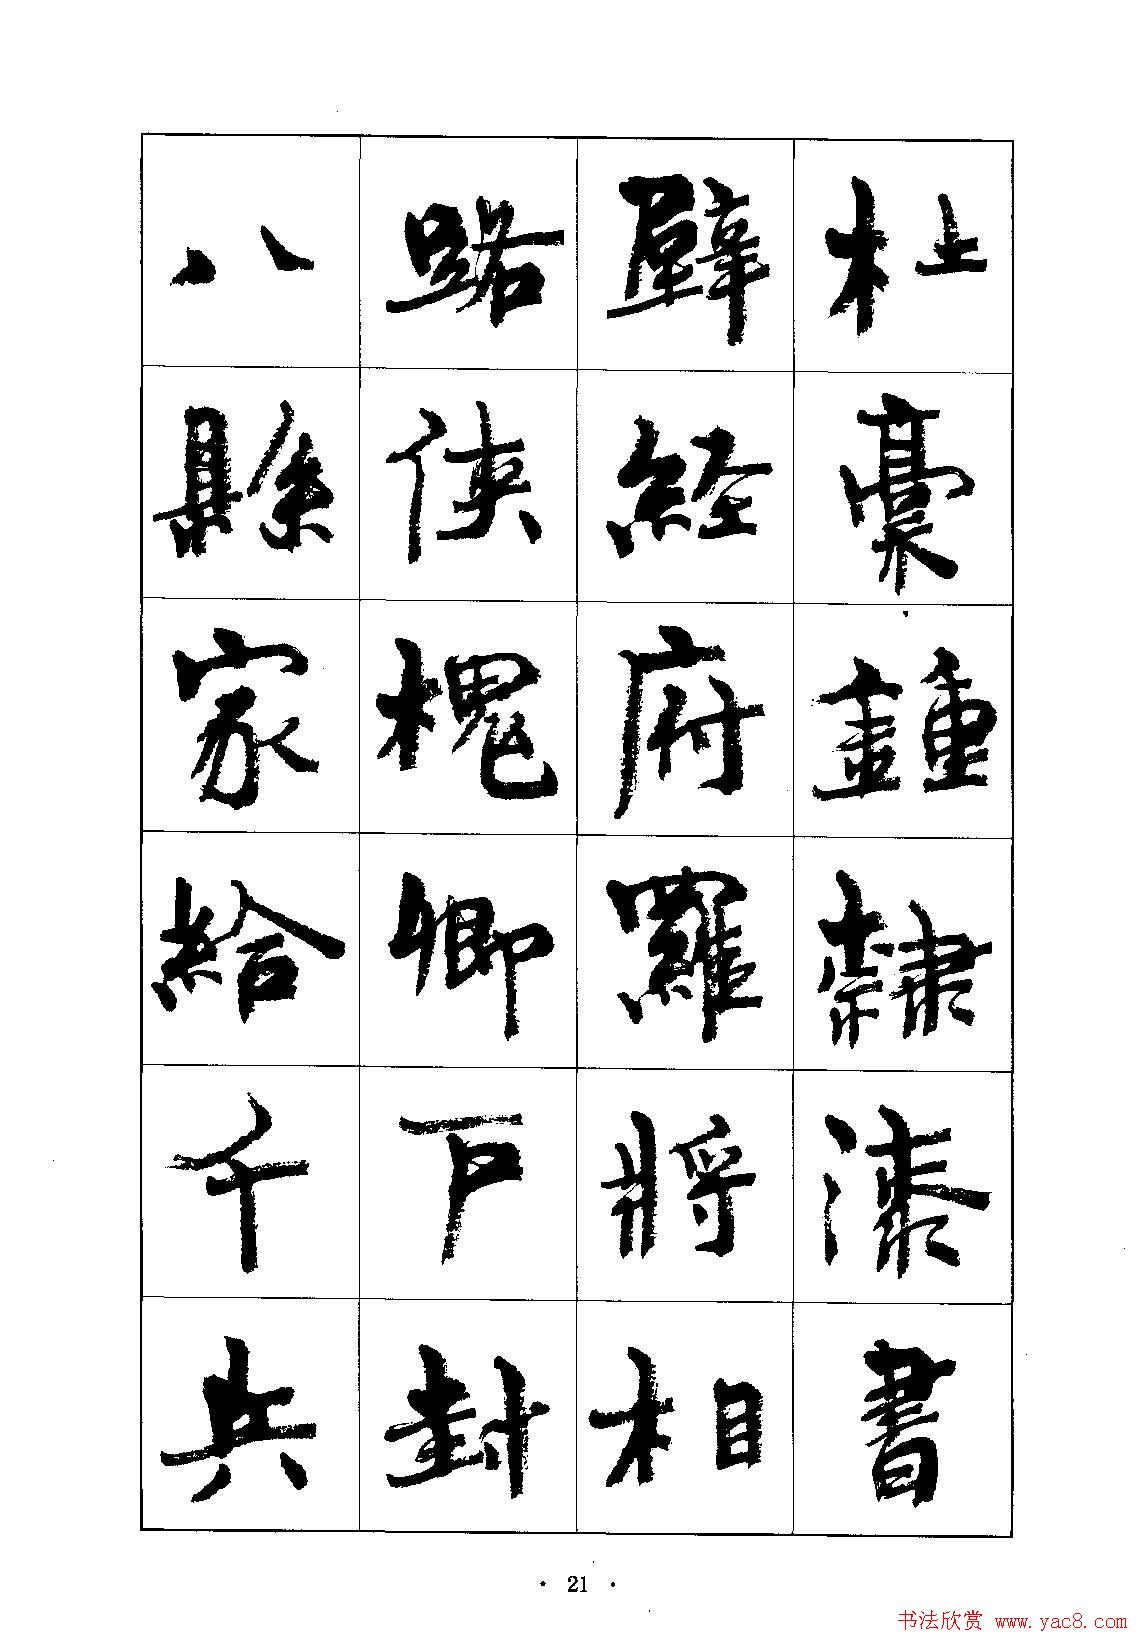 杜稾鍾隸漆書
壁經府羅將相
路俠槐卿戶封
八縣家給千兵
· 21 ·
书法欣赏 www.yac8.com